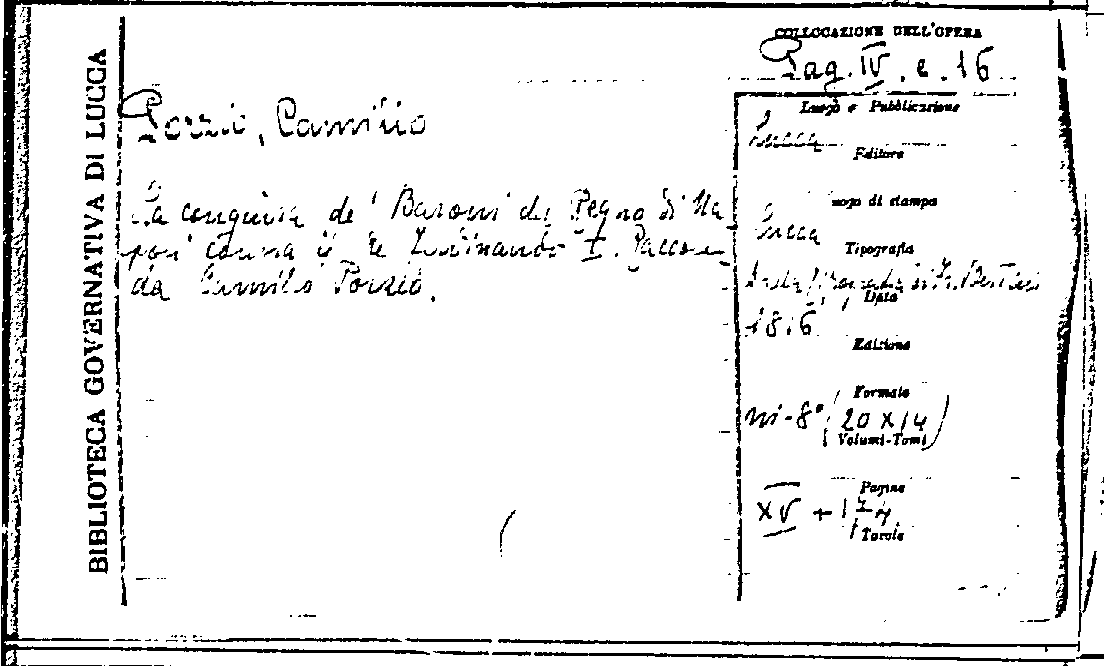 BIBLIOTECA GOVERNATIVA DI LUCCA
COLLOCAZIONE DELL'OPERA
Pag. IV. e. 16
Porzio, Camillo
La congiura de' Baroni del Regno di Na
poli contra il Re Ferdinando I. Raccolta
da Camillo Porzio.
Luogo e Pubblicazione
Lucca
Editore
Luogo di stampa
Lucca
Tipografia
Data
1816
Edizione
Formato
in-8° (20 x 14)
Volumi-Tomi
Pagine
XV + 174
Tavole